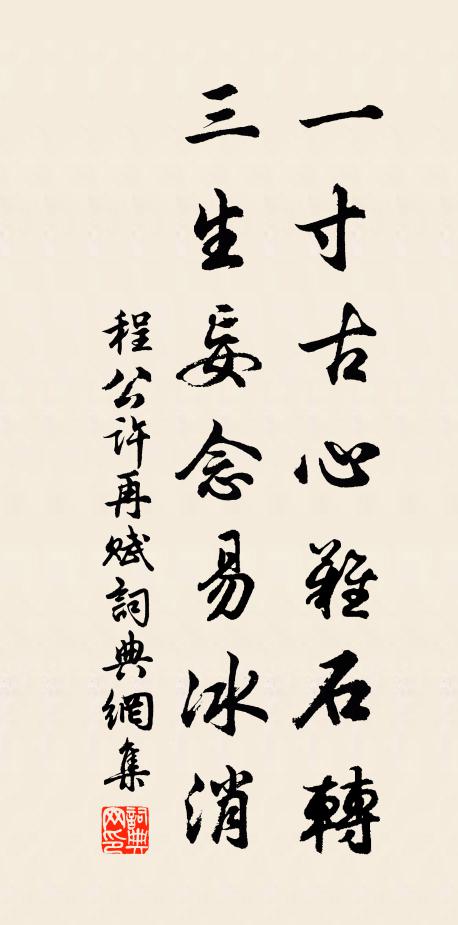 一寸古心難石轉
三生妄念易冰消
程公許再賦詞典網集
詞典網印